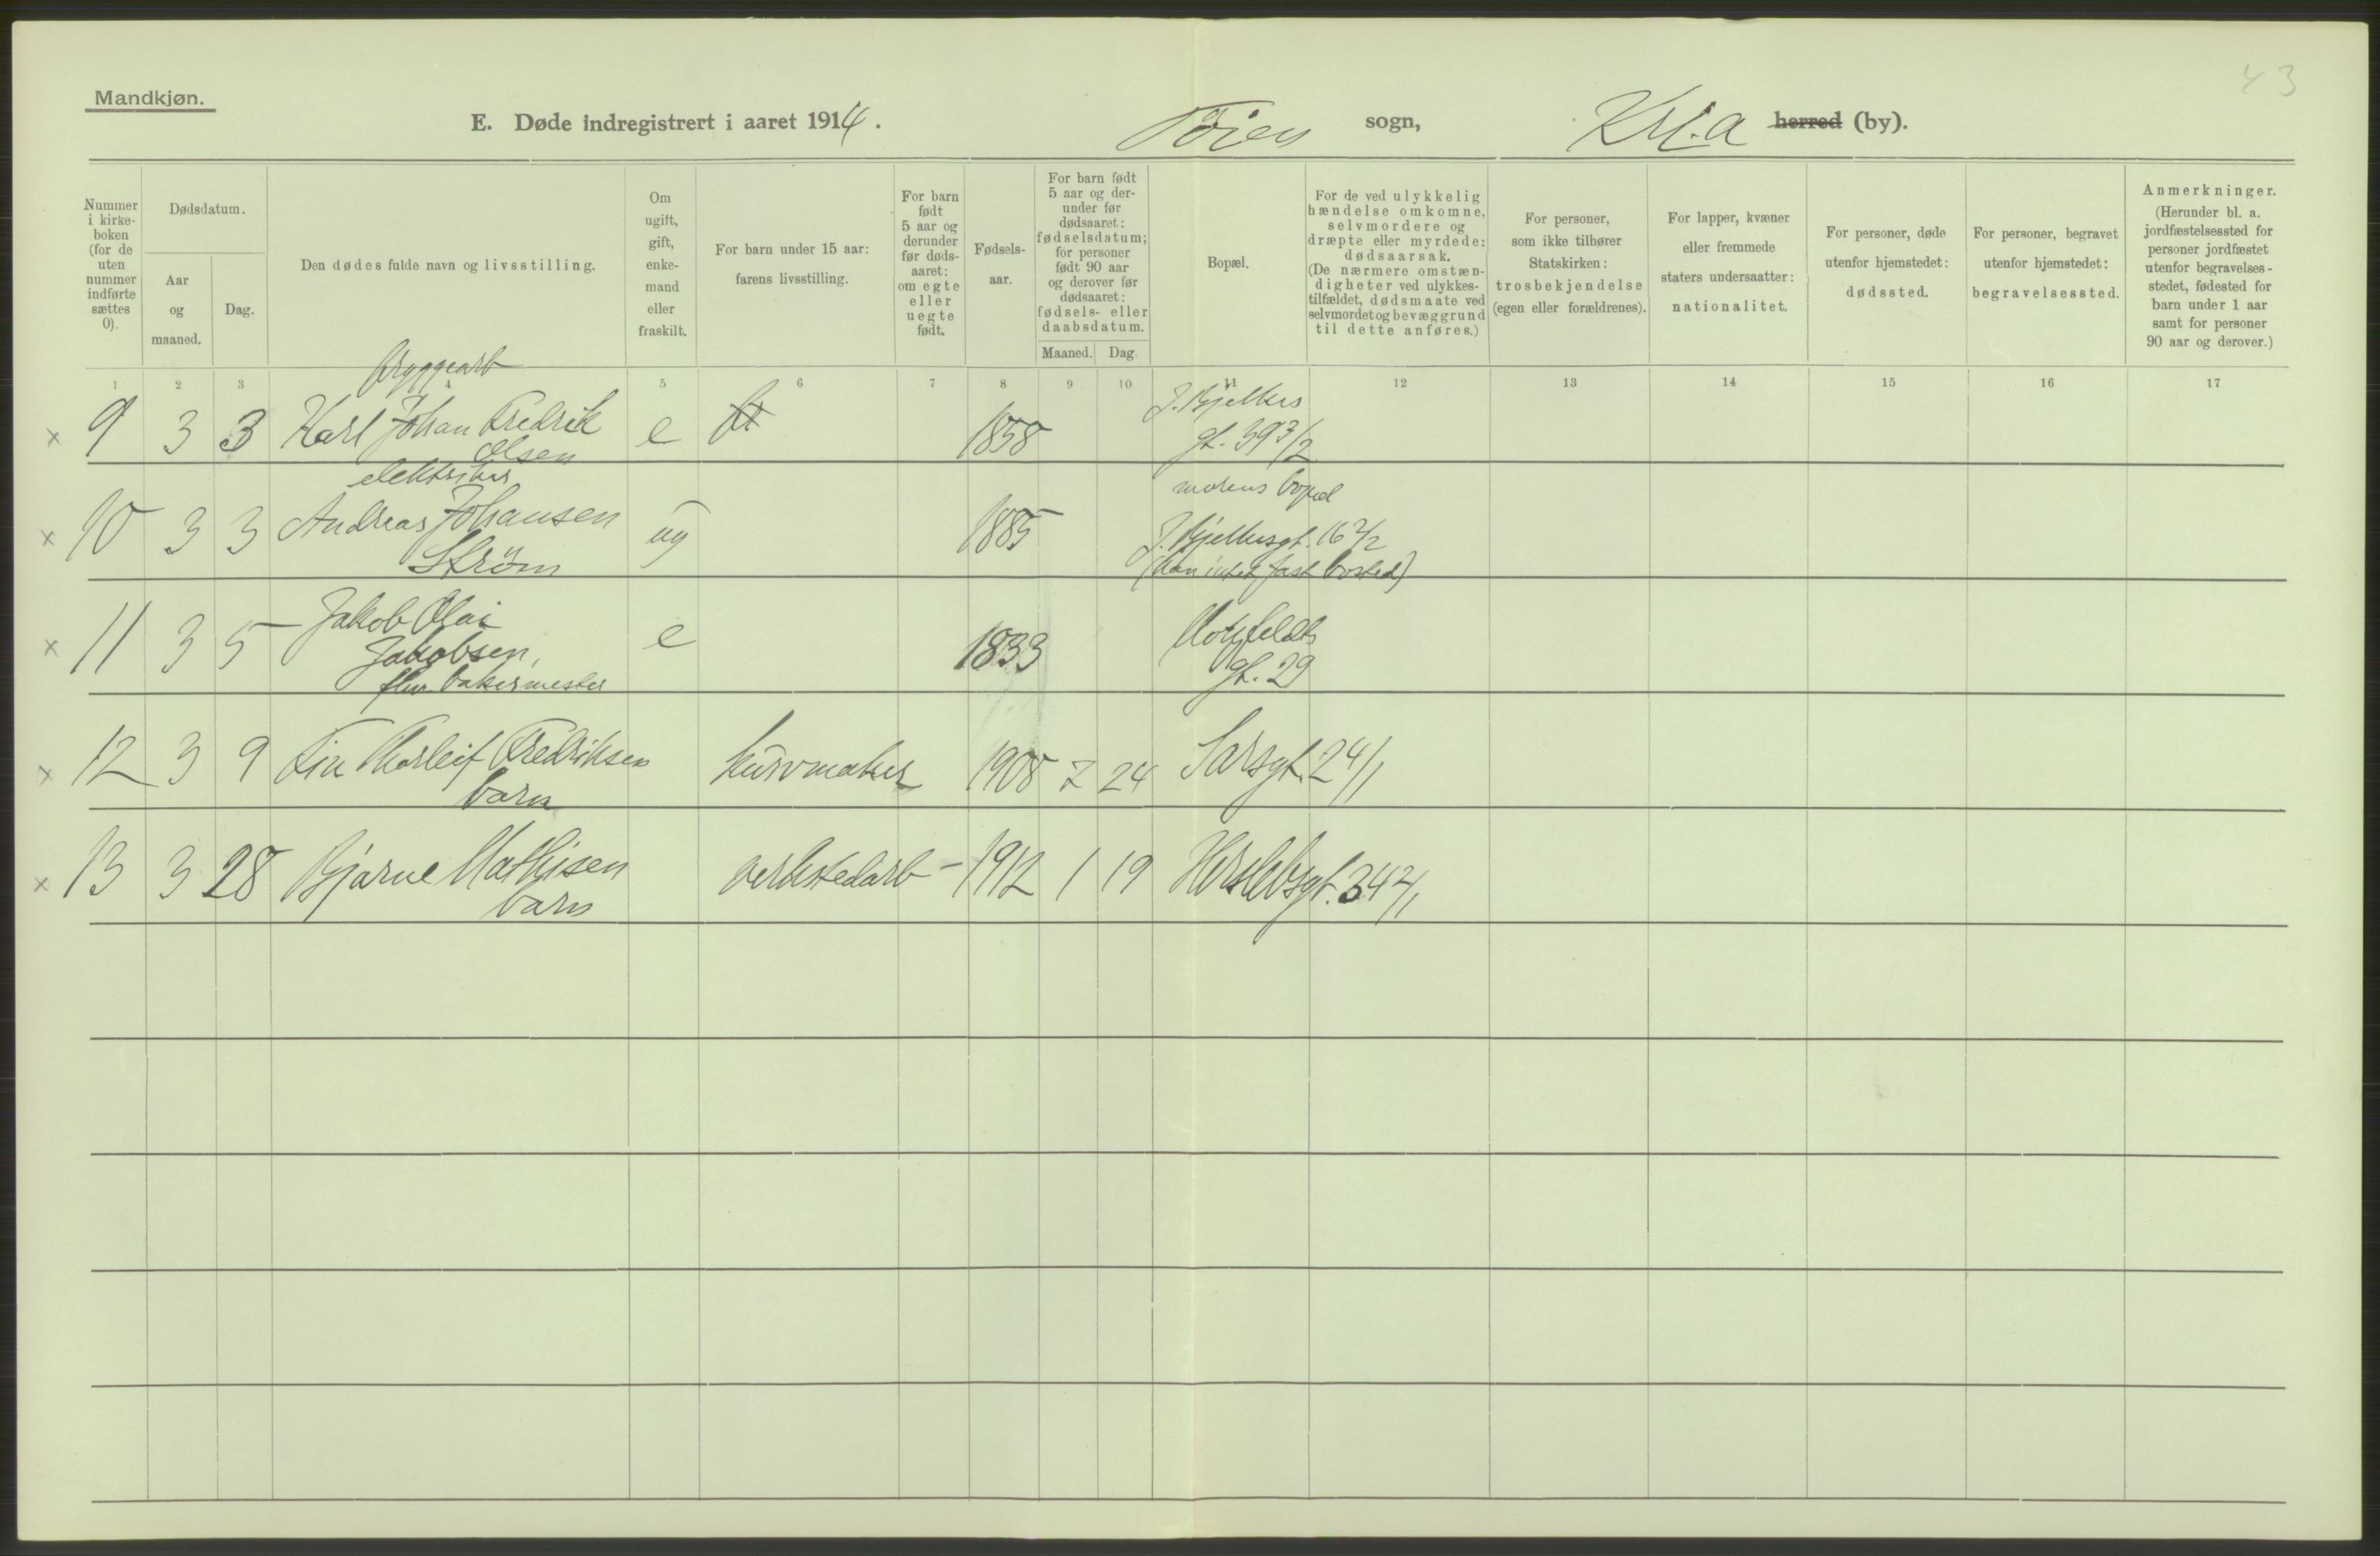 43
Mandkjøn.
E. Døde indregistrert i aaret 1914.
Tøien sogn,
Kr.a herred (by).
Nummer i kirke-boken (for de uten nummer indførte sættes 0).
Dødsdatum.
Aar og maaned.
Dag.
Den dødes fulde navn og livsstilling.
Om ugift, gift, enke-mand eller fraskilt.
For barn under 15 aar: farens livsstilling.
For barn født 5 aar og derunder før døds-aaret: om egte eller uegte født.
Fødsels-aar.
For barn født 5 aar og der-under før dødsaaret: fødselsdatum; for personer født 90 aar og derover før dødsaaret: fødsels- eller daabsdatum.
Maaned.
Dag.
Bopæl.
For de ved ulykkelig hændelse omkomne, selvmordere og dræpte eller myrdede: dødsaarsak. (De nærmere omstæn-digheter ved ulykkes-tilfældet, dødsmaate ved selvmordet og bevæggrund til dette anføres.)
For personer, som ikke tilhører Statskirken: trosbekjendelse (egen eller forældrenes).
For lapper, kvæner eller fremmede staters undersaatter: nationalitet.
For personer, døde utenfor hjemstedet: dødssted.
For personer, begravet utenfor hjemstedet: begravelsessted.
Anmerkninger. (Herunder bl. a. jordfæstelsessted for personer jordfæstet utenfor begravelses-stedet, fødested for barn under 1 aar samt for personer 90 aar og derover.)
1 2 3 4 5 6 7 8 9 10 11 12 13 14 15 16 17
bryggearb
x 9 3 3 Karl Johan Fredrik e 1858 J. Bjelkes
Olsen gt. 39 3/2
elektriker morens bopæl
x 10 3 3 Andreas Johansen ug 1885 J. Bjelkesgt. 16 2/2
Strøm (han intet fast bosted)
x 11 3 5 Jakob Olai e 1833 Motzfeldts
Jakobsen, gt. 29
fhv. bakermester
x 12 3 9 Fin Thorleif Fredriksen kurvmaker 1908 7 24 Sarsgt. 24/1
barn
x 13 3 28 Bjarne Mathisen verkstedarb – 1912 1 19 Herslebsgt. 34 2/1
barn